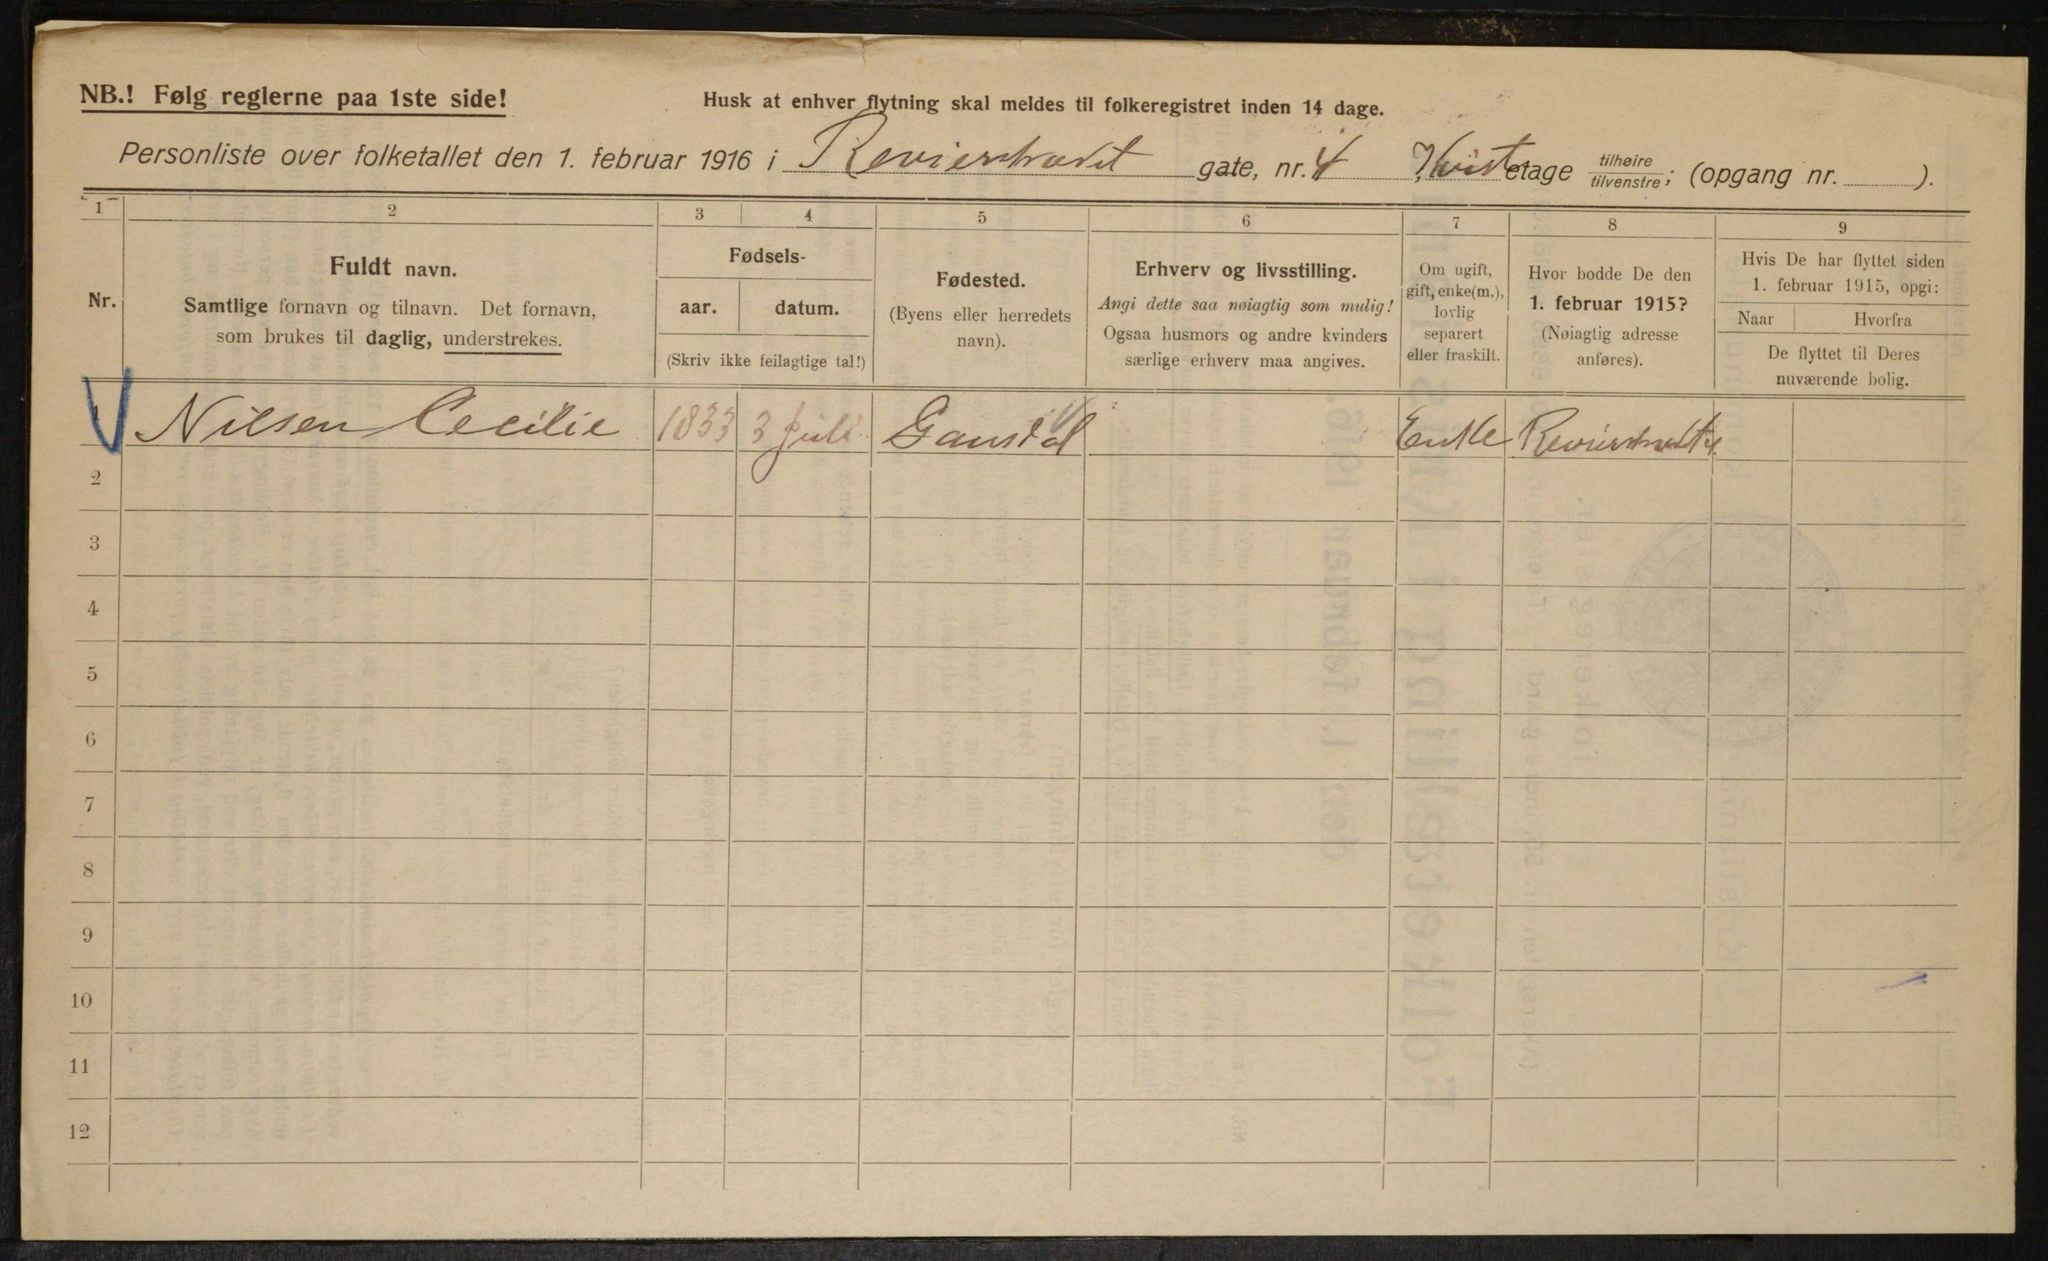 NB.! Følg reglerne paa 1ste side!
Husk at enhver flytning skal meldes til folkeregistret inden 14 dage.
Personliste over folketallet den 1. februar 1916 i Revierstrædet gate, nr. 4 Kvist etage tilhøire/tilvenstre; (opgang nr. ).
1 2 3 4 5 6 7 8 9
Nr.
Fuldt navn.
Samtlige fornavn og tilnavn. Det fornavn,
som brukes til daglig, understrekes.
Fødsels-
aar. datum.
(Skriv ikke feilagtige tal!)
Fødested.
(Byens eller herredets
navn).
Erhverv og livsstilling.
Angi dette saa nøiagtig som mulig!
Ogsaa husmors og andre kvinders
særlige erhverv maa angives.
Om ugift,
gift, enke(m.),
lovlig
separert
eller fraskilt.
Hvor bodde De den
1. februar 1915?
(Nøiagtig adresse
anføres).
Hvis De har flyttet siden
1. februar 1915, opgi:
Naar Hvorfra
De flyttet til Deres
nuværende bolig.
1 Nilsen Cecilie 1833 3 Juli Enke Revierstrædet 4
2
3
4
5
6
7
8
9
10
11
12